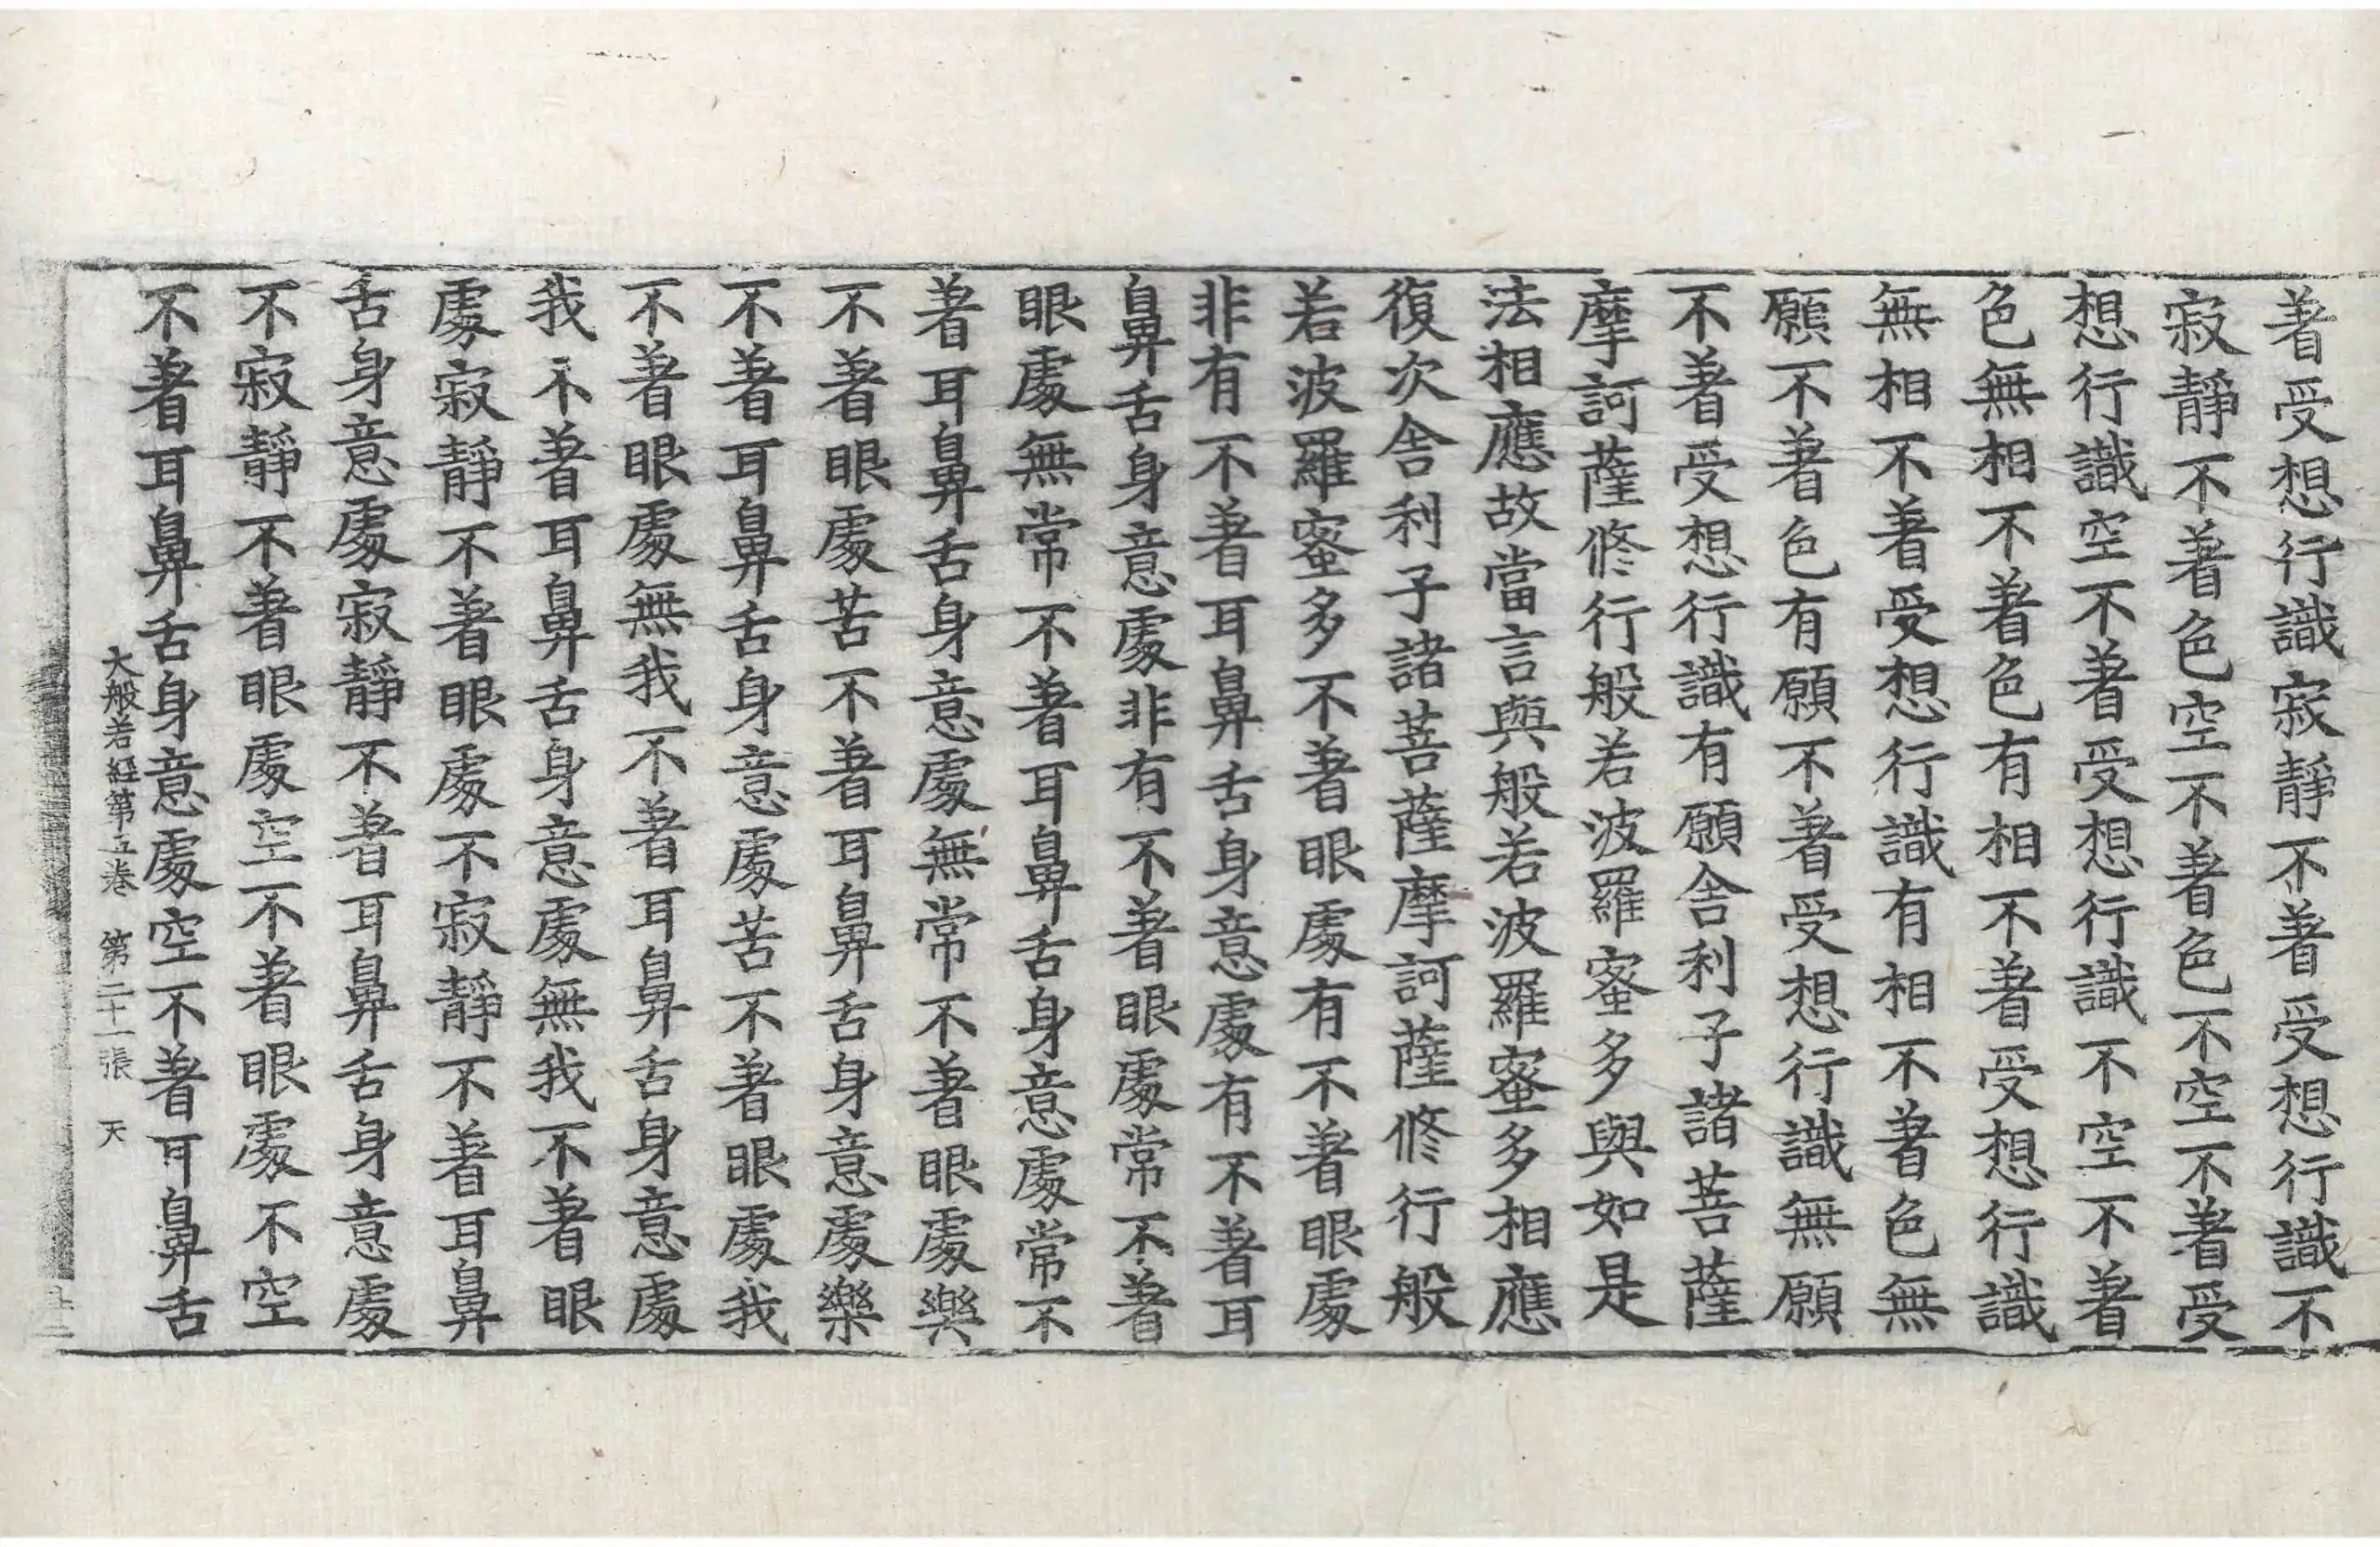 著受想行識寂靜不著受想行識不
寂靜不著色空不著色不空不著受
想行識空不著受想行識不空不著
色無相不著色有相不著受想行識
無相不著受想行識有相不著色無
願不著色有願不著受想行識無願
不著受想行識有願舍利子諸菩薩
摩訶薩修行般若波羅蜜多與如是
法相應故當言與般若波羅蜜多相應
復次舍利子諸菩薩摩訶薩修行般
若波羅蜜多不著眼處有不著眼處
非有不著耳鼻舌身意處有不著耳
鼻舌身意處非有不著眼處常不著
眼處無常不著耳鼻舌身意處常不
著耳鼻舌身意處無常不著眼處樂
不著眼處苦不著耳鼻舌身意處樂
不著耳鼻舌身意處苦不著眼處我
不著眼處無我不著耳鼻舌身意處
我不著耳鼻舌身意處無我不著眼
處寂靜不著眼處不寂靜不著耳鼻
舌身意處寂靜不著耳鼻舌身意處
不寂靜不著眼處空不著眼處不空
不著耳鼻舌身意處空不著耳鼻舌
大般若經第五卷 第二十一張 天